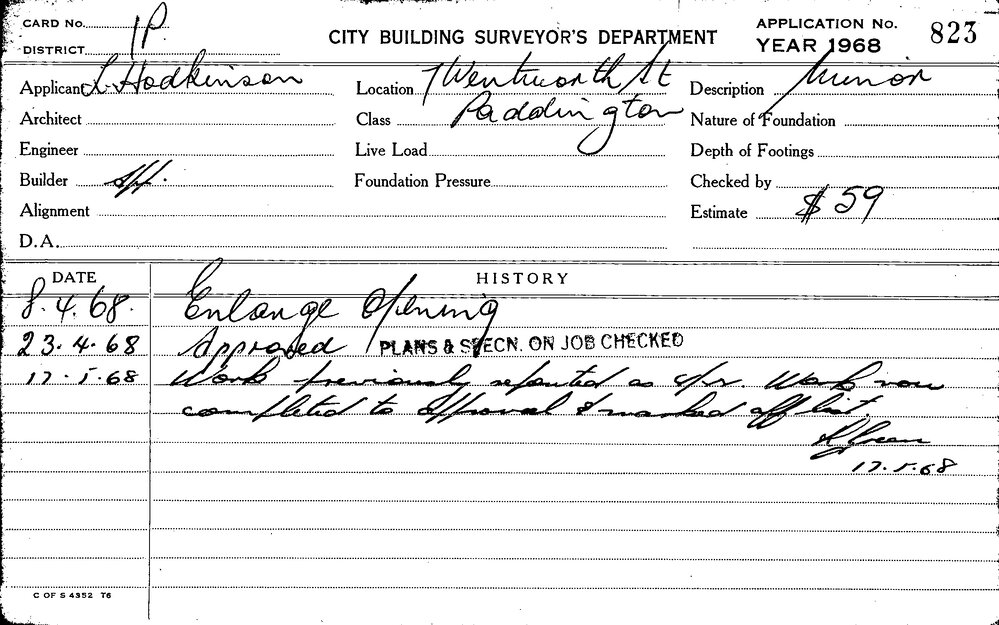 CARD No. 1P
DISTRICT
CITY BUILDING SURVEYOR'S DEPARTMENT
APPLICATION No. 823
YEAR 1968
Applicant L. Hodkinson
Location 7 Wentworth St
Description Minor
Architect
Class Paddington
Nature of Foundation
Engineer
Live Load
Depth of Footings
Builder
Foundation Pressure
Checked by
Alignment
Estimate $59
D.A.
DATE HISTORY
8.4.68. Enlarge Opening
23.4.68 Approved PLANS & SPECN. ON JOB CHECKED
17.5.68 Work previously reported as Work now
completed to approval & marked off list.
17.5.68
C OF S 4352 T6